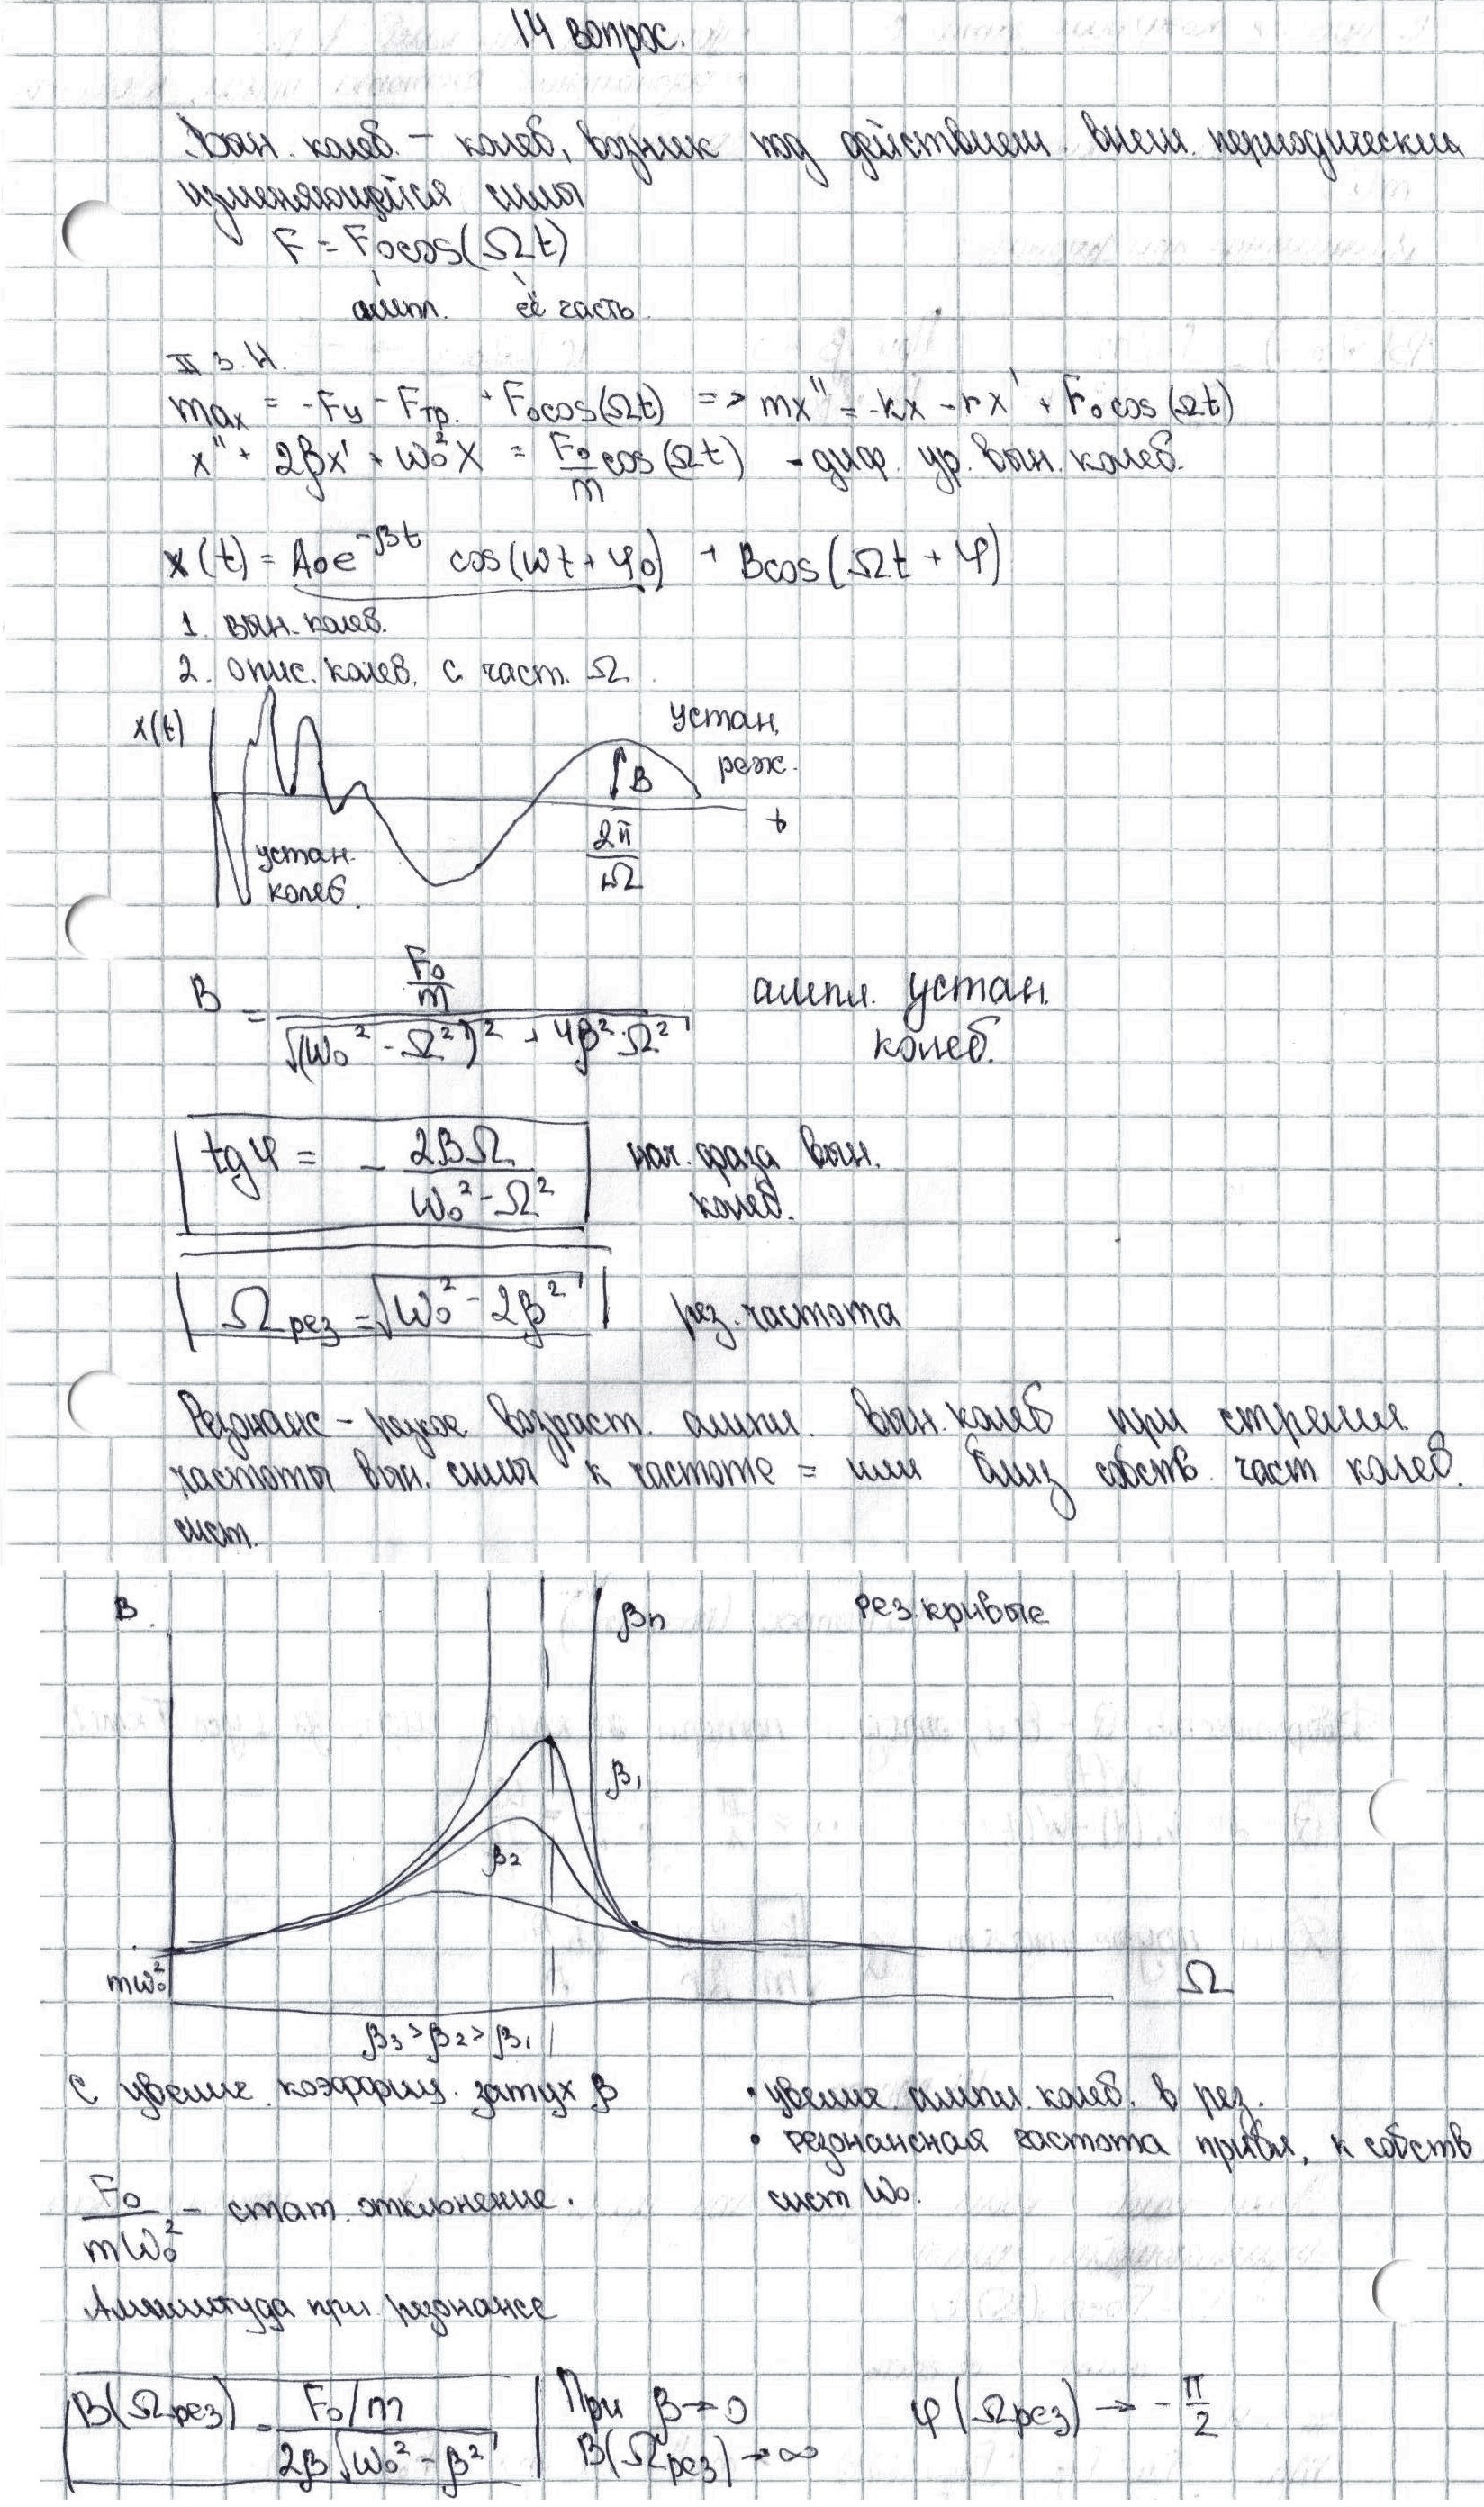 14 вопрос.
Вын. колеб. – колеб, возник под действием. внеш. периодически
изменяющейся силы
F = F₀cos(Ωt)
ампл. её часть.
II З. Н.
maₓ = -Fу - Fтр. + F₀cos(Ωt) => mx'' = -kx - rx' + F₀cos(Ωt)
x'' + 2βx' + ω₀²x = F₀/m cos(Ωt) - диф. ур. вын. колеб.
x(t) = A₀e^(-βt) cos(ωt + φ₀) + Bcos(Ωt + φ)
1. вын. колеб.
2. опис. колеб. с част. Ω.
x(t)
устан.
реж.
B
t
2π/Ω
устан.
колеб.
B = (F₀/m)/√((ω₀² - Ω²)² + 4β²·Ω²) ампл. устан.
колеб.
tgφ = - 2βΩ/(ω₀² - Ω²) нач. фаза вын.
колеб.
Ωрез = √(ω₀² - 2β²) рез. частота
Резонанс – резкое возраст. ампл. вын. колеб при стремл.
частоты вын. силы к частоте = или близ собств. част колеб.
сист.
B
βn
рез. кривые
β₁
β₂
mω₀²
Ω
β₃ > β₂ > β₁
С увелич. коэффиц. затух β
• увелич. ампл. колеб. в рез.
• резонансная частота прибл. к собств
сист ω₀.
F₀/mω₀² – стат. отклонение.
Амплитуда при резонансе
B(Ωрез) = (F₀/m)/(2β√(ω₀² - β²))
При β→0
B(Ωрез) → ∞
φ(Ωрез) → -π/2